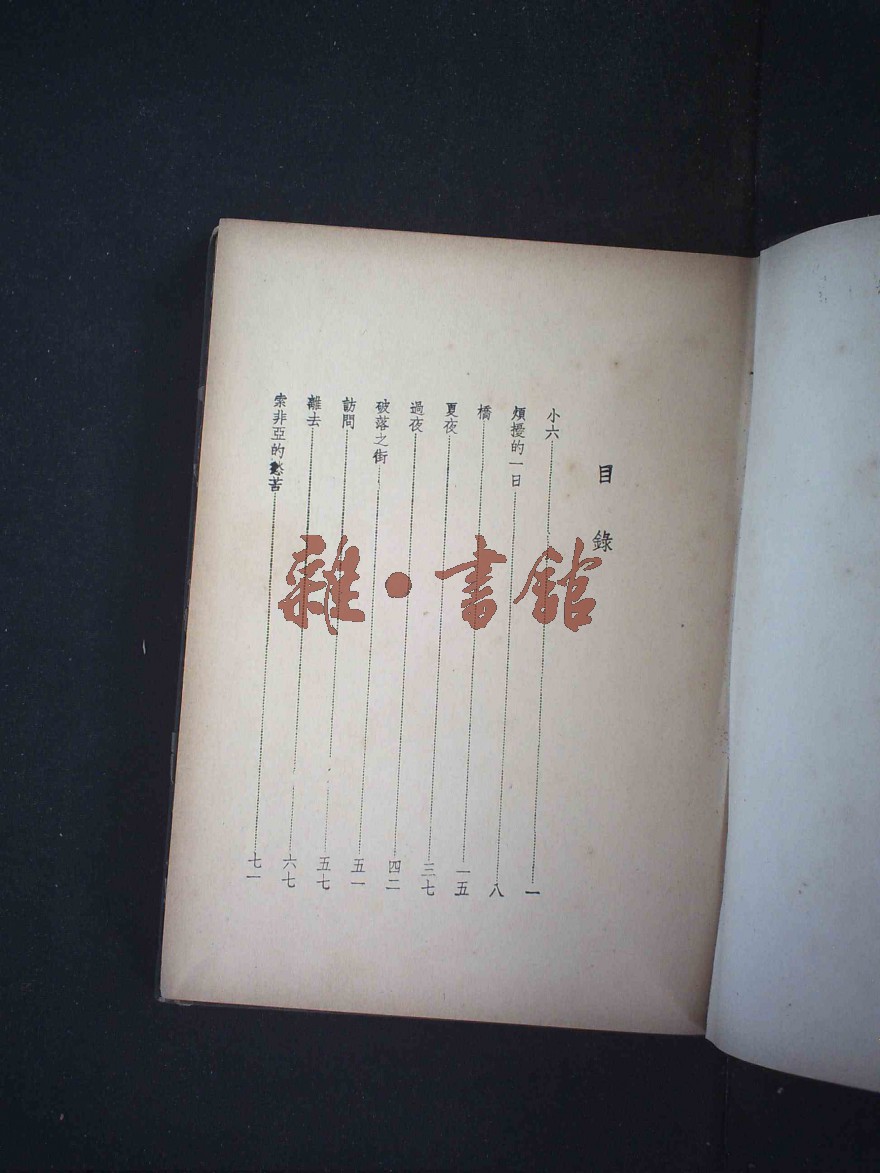 目錄
小六 一
煩擾的一日 八
橋 一五
夏夜 三七
過夜 四二
破落之街 五一
訪問 五七
離去 六七
索非亞的愁苦 七一
雜·書館